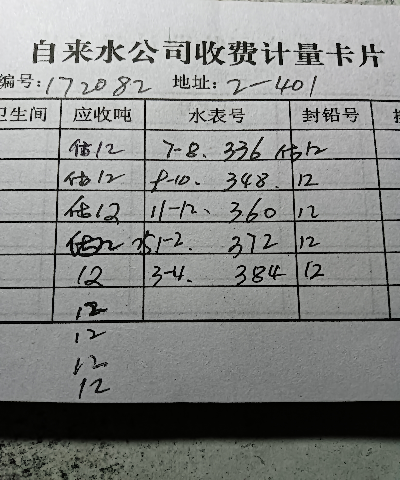 自来水公司收费计量卡片
编号:172082 地址:2-401
卫生间 应收吨 水表号 封铅号
估12 7-8. 336 估12
估12 9-10. 348. 12
估12 11-12. 360 12
估12 25 1-2. 372 12
12 3-4. 384 12
12
12
12
12